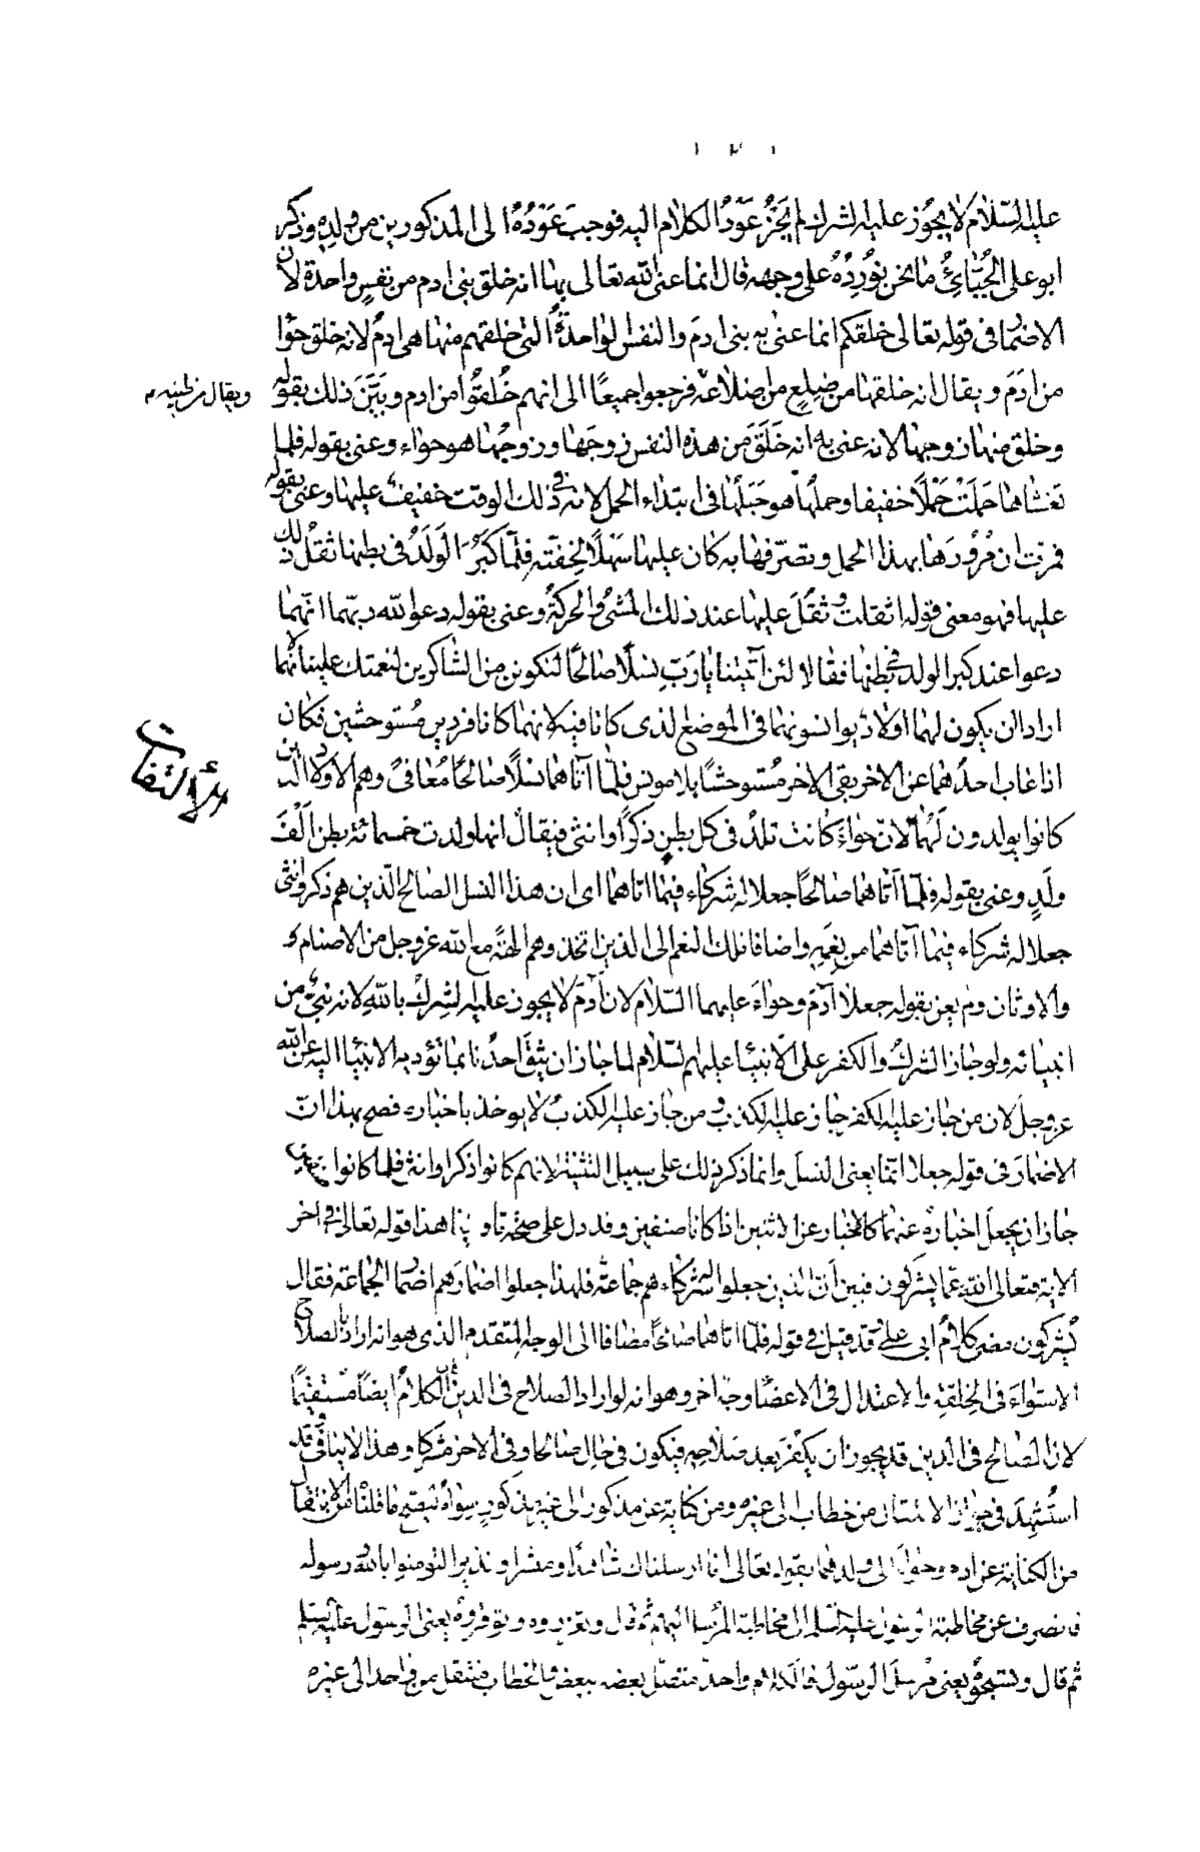 ١٣١
عليه السلام لا يجوز عليه الشرك لم يَجُزْ عَوْدُ الكلام اليه فوجب عَوْدُهُ الى المذكورين من ولده وذكر
ابو على الجُبّائىُّ ما نحن نُورِدُهُ على وجهه قال انما عنى الله تعالى بهذا انه خلق بنى ادم من نفسٍ واحدة لان
الاضمار فى قوله تعالى خلقكم انما عنى به بنى ادمَ والنفس الواحدةُ التى خلقهم منها هى ادمُ لانه خلق حوّا
من ادَمَ ويقال انه خلقها من ضِلعٍ من اضلاعه فرجعوا جميعًا الى انهم خُلقُوا من ادم وبَيَّنَ ذلك بقوله
ويقال من طينه م
وخلق منها زوجها لانه عنى به انه خَلَقَ من هذه النفس زوجَها وزوجُها هو حواء وعنى بقوله فلما
تغشاها حَمَلَتْ حَمْلًا خفيفا وحملُها هو حَبَلُها فى ابتداء الحمل لانه فى ذلك الوقت خفيفٌ عليها وعنى بقوله
فمرّت ان مُرُورَها بهذا الحمل وتصرّفها به كان عليها سَهْلًا لخفّته فلمّا كَبُرَ الوَلَدُ فى بطنها ثقُل ذلك
عليها فهو معنى قوله اثقلت وثقُلَ عليها عند ذلك المشىُ والحركةُ وعنى بقوله دعوا الله ربّهما انّهما
دعوا عند كبر الولد فى بطنها فقالا لئن آتيتنا يا ربّ نسلًا صالحًا لنكونن من الشاكرين لنعمتك علينا لانّهما
ارادا ان يكون لهما اولاد يوانسونهما فى الموضع الذى كانا فيه لانهما كانا فردين مُستوحشين فكان
اذا غاب احدُهما عن الاخر بقى الاخر مُستوحشًا بلا مونس فلمّا آتاهما نسلًا صالحًا مُعافىً وهم الاولاد الذين
كانوا يولدون لَهُما لانّ حواءَ كانت تلدُ فى كل بطنٍ ذكرًا وانثى فيقال انها ولدت خمسمائة بطن اَلْفَ
ولَدٍ وعنى بقوله فلمّا آتاهما صالحًا جعلا له شركاء فيما اتاهما اى ان هذا النسل الصالح الّذين هم ذكر وانثى
جعلا له شركاء فيما آتاهما من نِعَمِهِ واضافا تلك النعم الى الذين اتخذوهم الهةً مع الله عزوجل من الاصنام و
والاوثان ولم يعن بقوله جعلا آدَمَ وحواءَ عليهما السّلام لان آدَمَ لا يجوز عليه الشِركُ بالله لانه نبىٌّ من
انبيائه ولو جاز الشركُ والكفر على الانبيا عليهم السّلام لما جاز ان يثقَ احدُنا بما تؤديه الانبيا اليه عن الله
عزوجل لان من جاز عليه الكفر جاز عليه الكذب ومن جاز عليه الكذبُ لا يوخذ باخباره فصح بهذا انّ
الاضمارَ فى قوله جعلا انّما يعنى النسلَ وانما ذكر ذلك على سبيل التثنية لانهم كانوا ذكرا وانثى فلما كانوا
جاز ان يجعلَ اخبارهُ عنهما كالاخبار عن الاثنين اذا كانا صنفين وقد دل على صحة تاويلنا هذا قوله تعالى فى اخر
الاية فتعالى الله عمّا يشركون فبين اَنّ الذين جعلوا لله شركاء هم جماعةٌ فلهذا جعل اضمارَهم اضمار الجماعة فقال
يُشركون مضى كلامُ ابى علىّ وقد قيل فى قوله فلمّا اتاهما صالحًا مضافا الى الوجه المتقدم الذى هو انه اراد بالصلاح
الاستواءَ فى الخلقةِ والاعتدال فى الاعضا وجهٌ اخر وهو انه لو اراد الصلاح فى الدين لكان الكلامُ ايضًا مستقيمًا
لانّ الصالح فى الدين قد يجوز ان يَكْفُرَ بعد صَلاحهِ فيكون فى حال صالحا وفى الاخر مشركا وهذا لا يتنافى وقد
استُشْهِدَ فى جواز الانتقال من خطاب الى غيره ومن كناية عن مذكور الى غيره
من الكناية عن ادم وحوّاء الى ولدهما بقوله تعالى انا ارسلناك شاهدًا ومبشرا ونذيرا لتومنوا بالله ورسوله
فانصرف عن مخاطبة الرسول عليه السّلم الى مخاطبة المُرسل اليهم ثم قال وتعزروه وتوقروهُ يعنى الرسول عليه السّلم
ثم قال وتسبحوهُ يعنى مُرسلَ الرسول فالكلام واحدٌ متصل بعضه ببعض والخطاب منتقل من واحد الى غيره